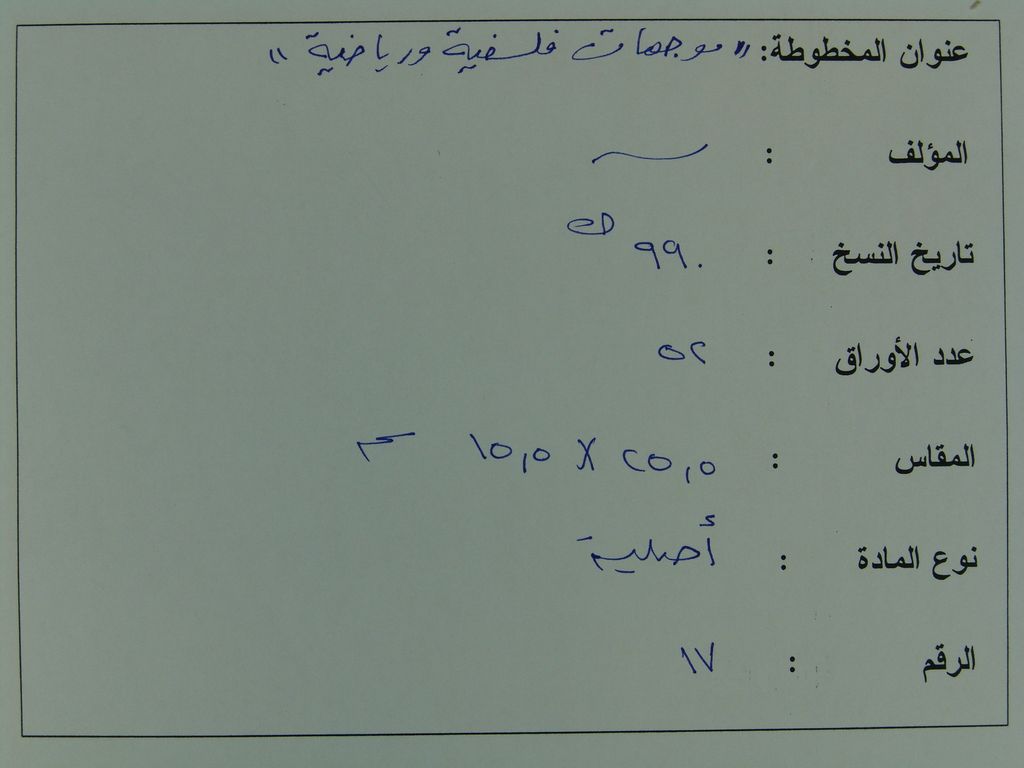 عنوان المخطوطة: "موجهات فلسفية ورياضية"
المؤلف :
تاريخ النسخ : ٩٩٠ ھ
عدد الأوراق : ٥٢
المقاس : ٢٥,٥ X ١٥,٥ سم
نوع المادة : أصلية
الرقم : ١٧